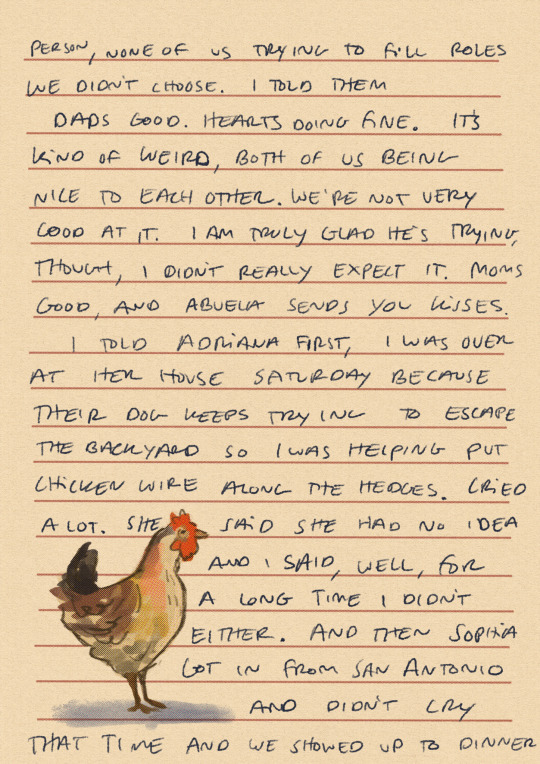 PERSON, NONE OF US TRYING TO FILL ROLES
WE DIDN'T CHOOSE. I TOLD THEM
DADS GOOD. HEARTS DOING FINE. IT'S
KIND OF WEIRD, BOTH OF US BEING
NICE TO EACH OTHER. WE'RE NOT VERY
GOOD AT IT. I AM TRULY GLAD HE'S TRYING,
THOUGH, I DIDN'T REALLY EXPECT IT. MOMS
GOOD, AND ABUELA SENDS YOU KISSES.
I TOLD ADRIANA FIRST, I WAS OVER
AT HER HOUSE SATURDAY BECAUSE
THEIR DOG KEEPS TRYING TO ESCAPE
THE BACKYARD SO I WAS HELPING PUT
CHICKEN WIRE ALONG THE HEDGES. CRIED
A LOT. SHE SAID SHE HAD NO IDEA
AND I SAID, WELL, FOR
A LONG TIME I DIDN'T
EITHER. AND THEN SOPHIA
GOT IN FROM SAN ANTONIO
AND DIDN'T CRY
THAT TIME AND WE SHOWED UP TO DINNER